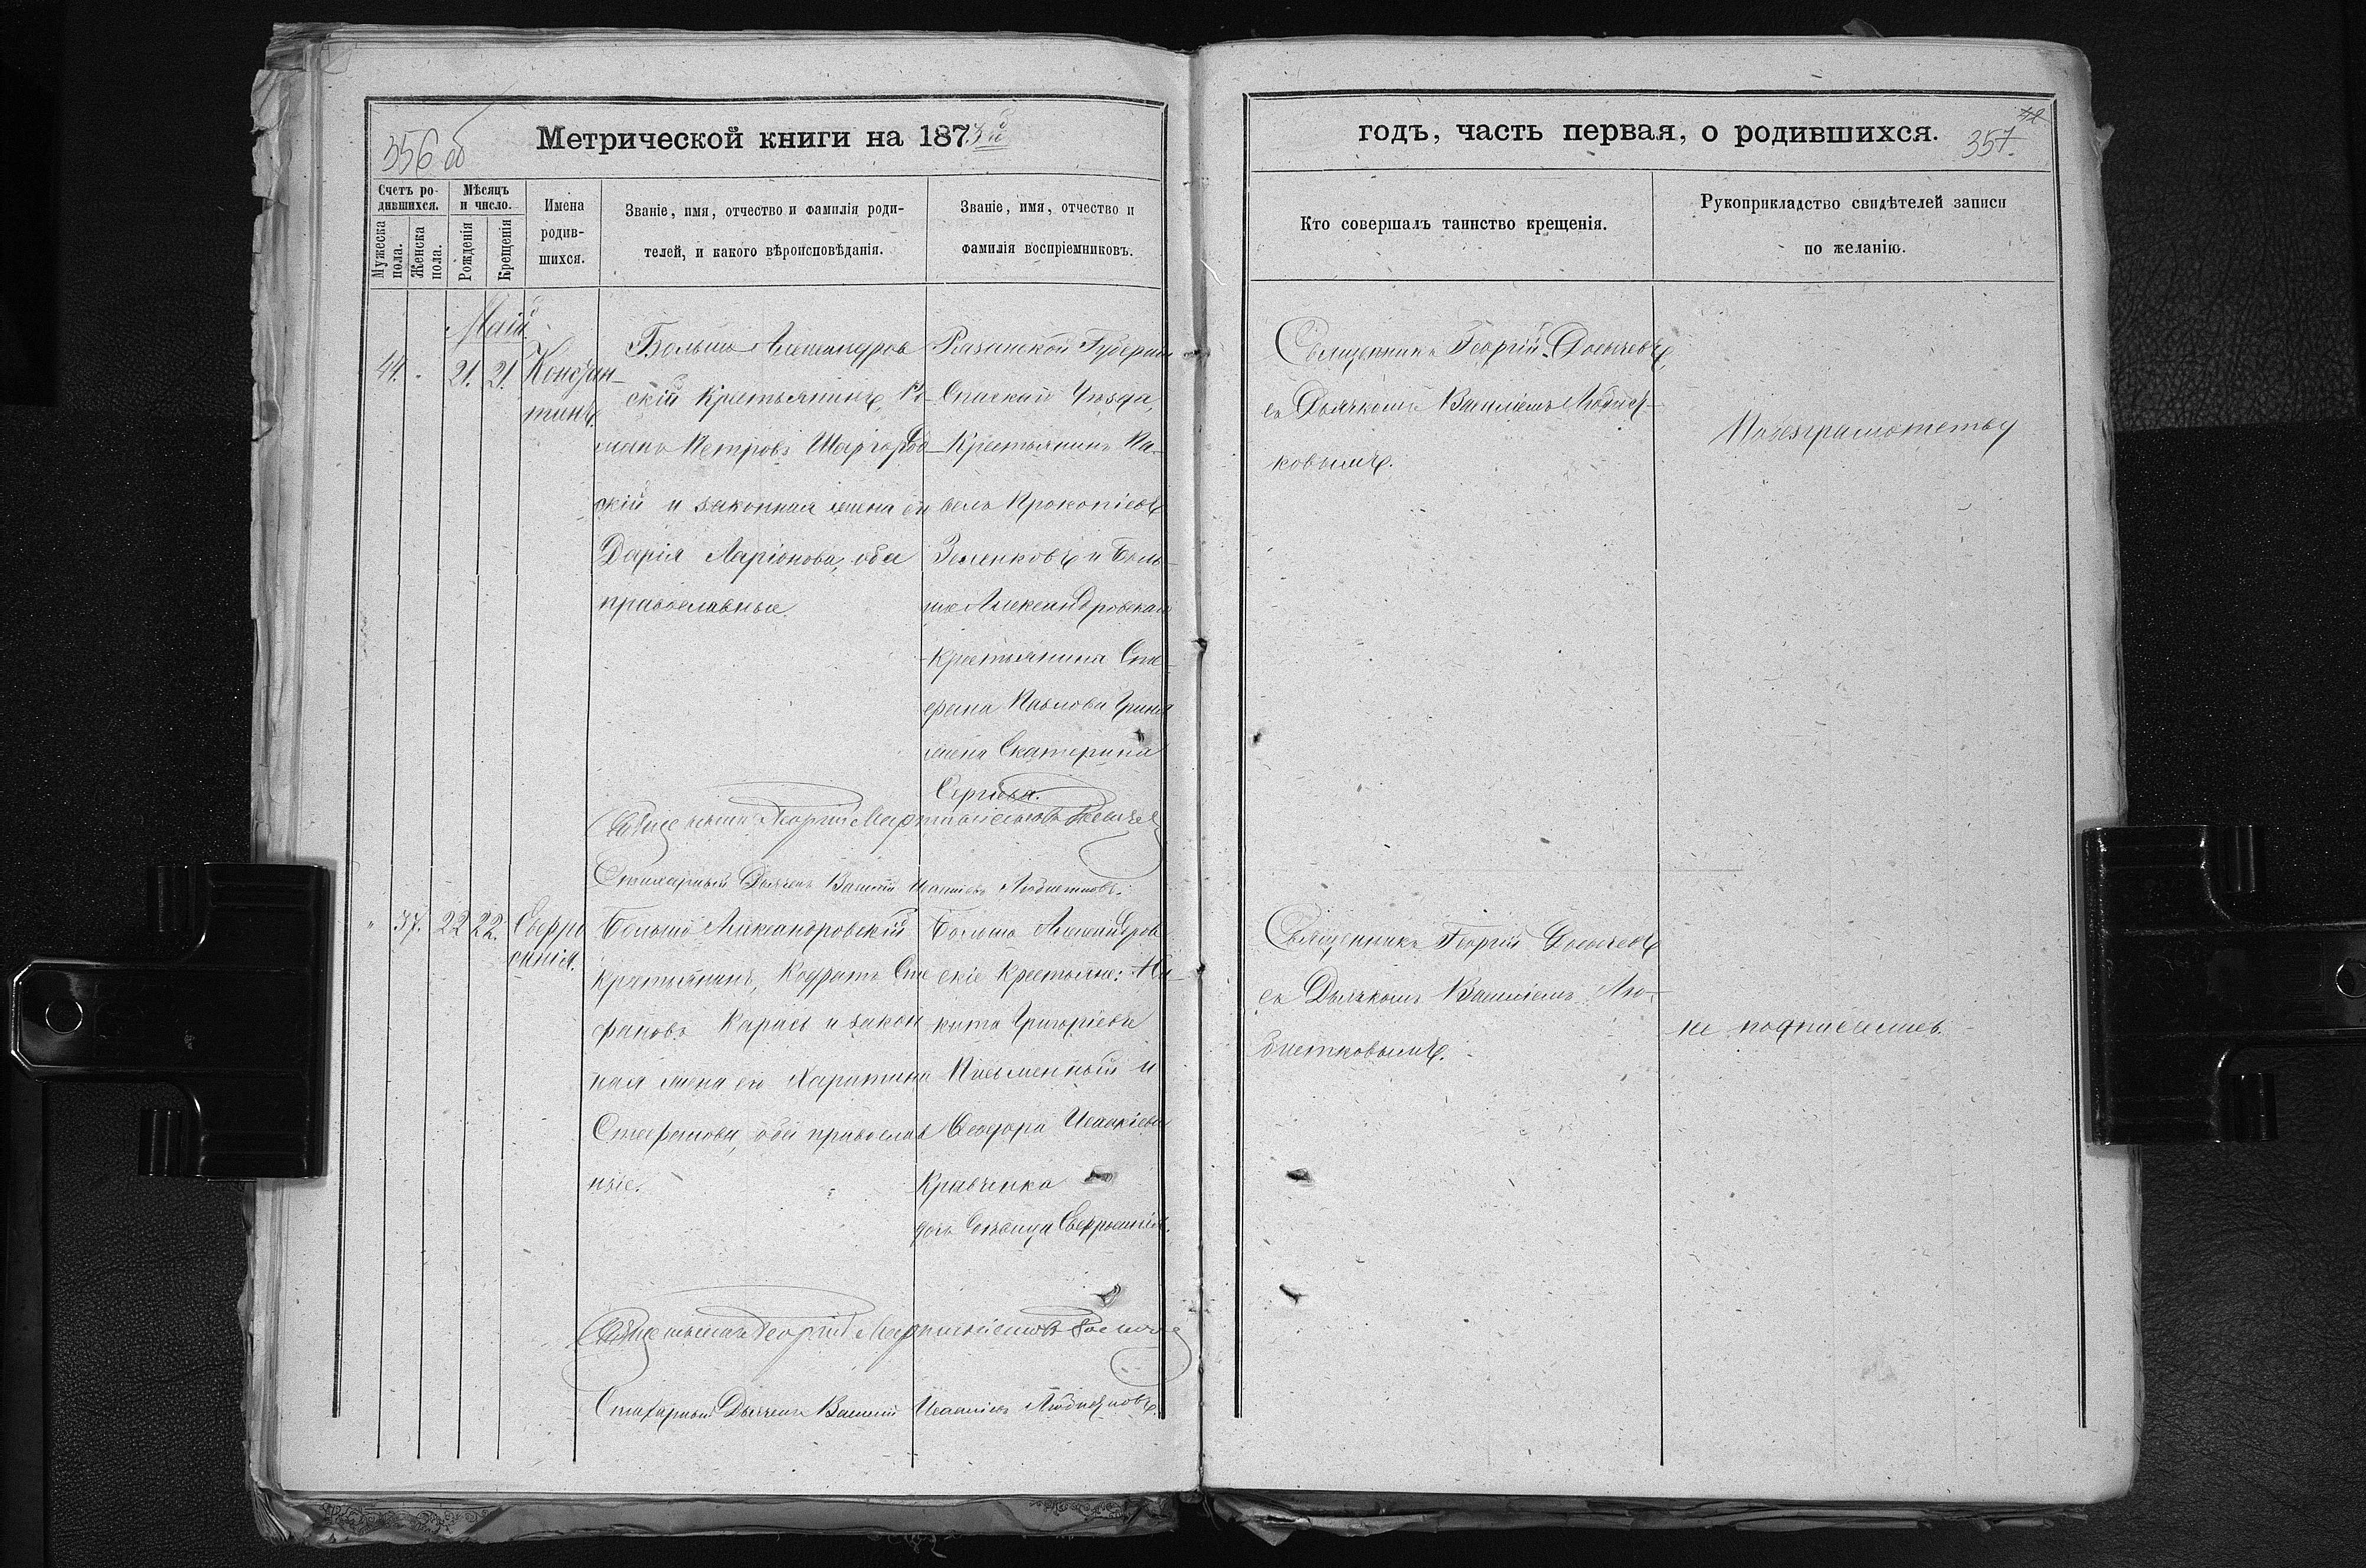 356 об
Метрической книги на 1873й
Счетъ ро-
дившихся.
Мѣсяцъ
и число.
Мужеска
пола.
Женска
пола.
Рожденія
Крещенія
Имена
родив-
шихся.
Званіе, имя, отчество и фамилія роди-
телей, и какого вѣроисповѣданія.
Званіе, имя, отчество и
фамилія воспріемниковъ.
Май
44. 21. 21. Констан-
тинъ.
Больше Александров
скій Крестьянинъ, Ро-
манъ Петровъ Шаргород
скій и законная жена его
Дарія Ларіонова, оба
православные
Рязанской Губерніи
Спаскаго Уѣзда,
Крестьянинъ Па-
велъ Прокопіевъ
Зеленковъ и Боль-
ше Александровскаго
Крестьянина Сте-
фана Павлова
жена Екатерина
Сергіева.
Священникъ Георгій
Стихарный Дьячекъ Василій
" 37. 22 22. Евфро
синія.
Больше Александровскій
Крестьянинъ, Кодратъ Сте
фановъ Карась и закон
ная жена его Харитина
Стефанова, оба православ
ные.
Больше Александров
скіе Крестьяне: Ни-
кита Григоріевъ
Письменный и
Феодора Исаакіева
Кравченко
дочь
Священникъ Георгій
Стихарный Дьячекъ Василій
годъ, часть первая, о родившихся.
357.
Кто совершалъ таинство крещенія.
Рукоприкладство свидѣтелей записи
по желанію.
Священникъ Георгій
съ Дьячкомъ Василіемъ Любист-
ковымъ.
Священникъ Георгій
съ Дьячкомъ Василіемъ Лю-
бистковымъ.
По безграмотству
не подписались.